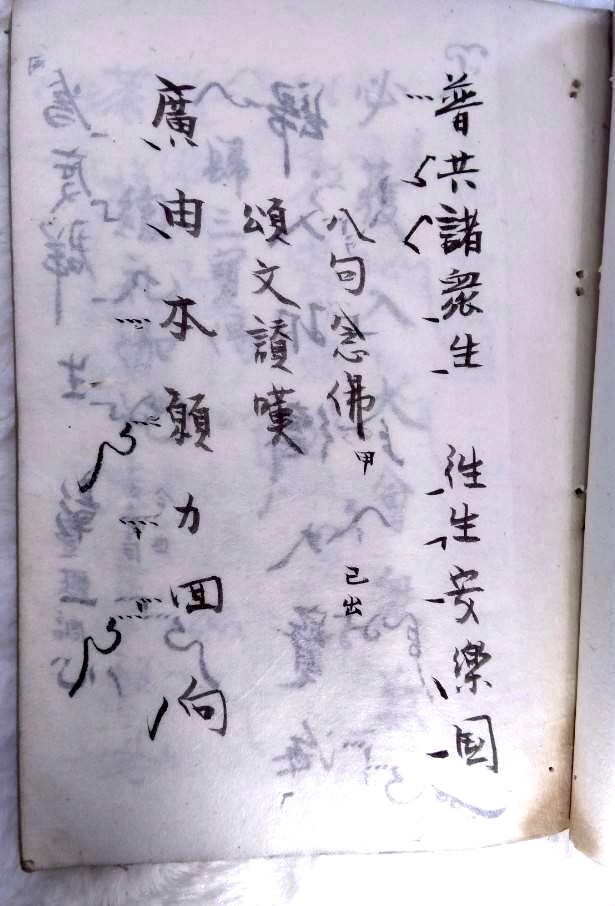 普共諸衆生 往生安樂国
八句念佛甲 已出
頌文讃嘆
廣由本願力回向